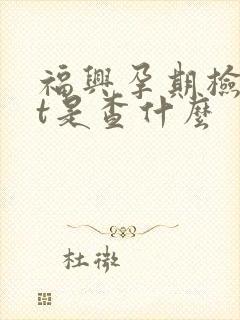 福興孕期檢
t是查什麼
杜微